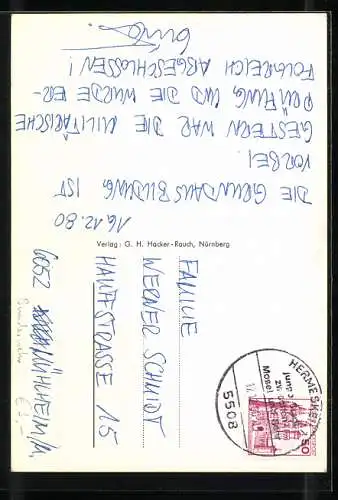 16.12.80
DIE GRUNDAUSBILDUNG IST
VORBEI.
GESTERN WAR DIE MILITÄRISCHE
PRÜFUNG, UND DIE WURDE ER-
FOLGREICH ABGESCHLOSSEN!
Verlag: G. H. Hacker-Rauch, Nürnberg
FAMILIE
WERNER SCHMIDT
HAUFFSTRASSE 15
6052 MÜHLHEIM/M.
HERMESKEIL
5508
50